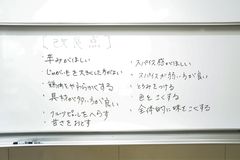 [改良点]
・辛みがほしい
・じゃがいもを大きくした方がよい
・鶏肉をやわらかくする
・具材が多い方が良い
・フルーツピューレをへらす
・甘さをおとす
・スパイス感がほしい
・スパイスが多い方が良い
・とろみをつける
・色をこくする
・全体的に味をこくする